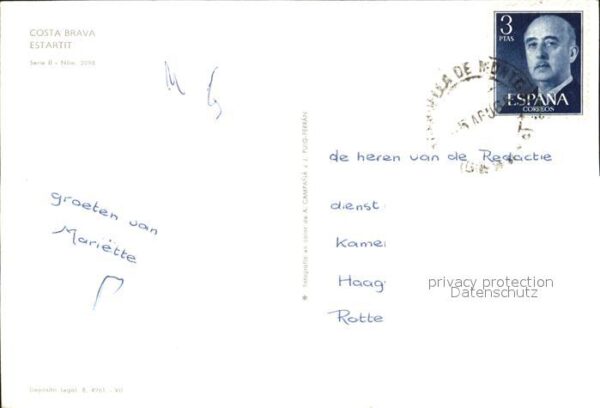 COSTA BRAVA
ESTARTIT
Serie II - Núm. 2098
3
PTAS
ESPAÑA
CORREOS
de heren van de Redactie
dienst
Kamer
Haag
Rotte
groeten van
Mariëtte
Fotografía en color de A. CAMPAÑÁ y J. PUIG-FERRÁN
privacy protection
Datenschutz
Depósito Legal B.